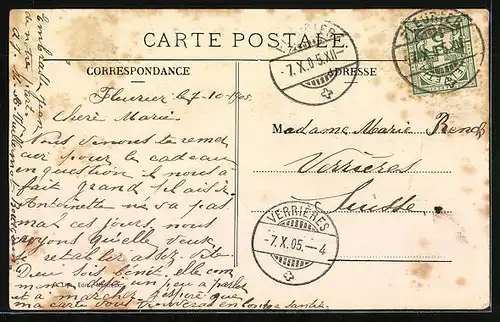 CARTE POSTALE.
CORRESPONDANCE
ADRESSE
Fleurier le 7-10-1905
Chère Marie
Nous venons te remer
cier pour le cadeau
en question il nous a
fait grand plaisir
Antoinette ne va pas
mal ces jours, nous
croyons qu'elle veut
se rétablir assez vite
Dieu soit bénit, elle com
mence un peu à parler
et à marcher. J'espère que
ma carte vous trouveras en bonne santé
Madame Marie
Verrières
Suisse
VERRIÈRES
-7.X.05.-4
-7.X.05.XII